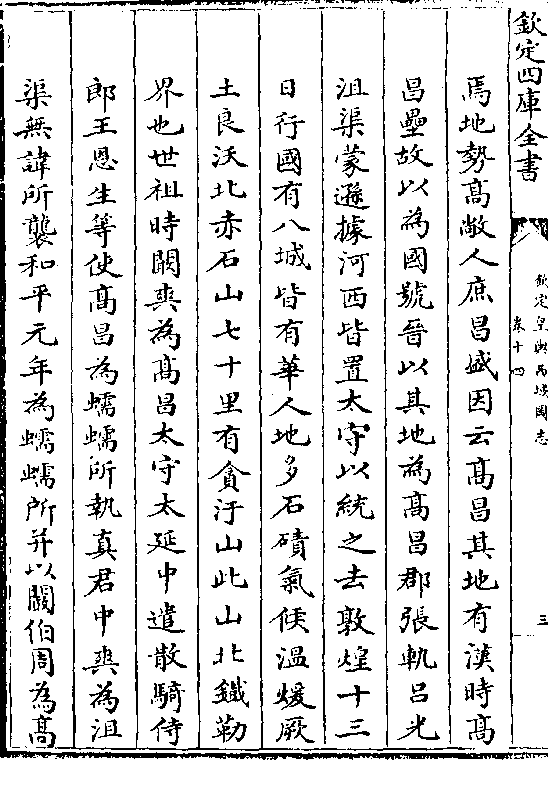 欽定四庫全書
欽定皇輿西域圖志
卷十四
三
焉地勢高敞人庶昌盛因云高昌其地有漢時高
昌壘故以為國號晉以其地為高昌郡張軌吕光
沮渠蒙遜據河西皆置太守以統之去敦煌十三
日行國有八城皆有華人地多石磧氣候温煖厥
土良沃北赤石山七十里有貪汙山此山北鐵勒
界也世祖時闞爽為高昌太守太延中遣散騎侍
郎王恩生等使高昌為蠕蠕所執真君中爽為沮
渠無諱所襲和平元年為蠕蠕所并以闞伯周為高